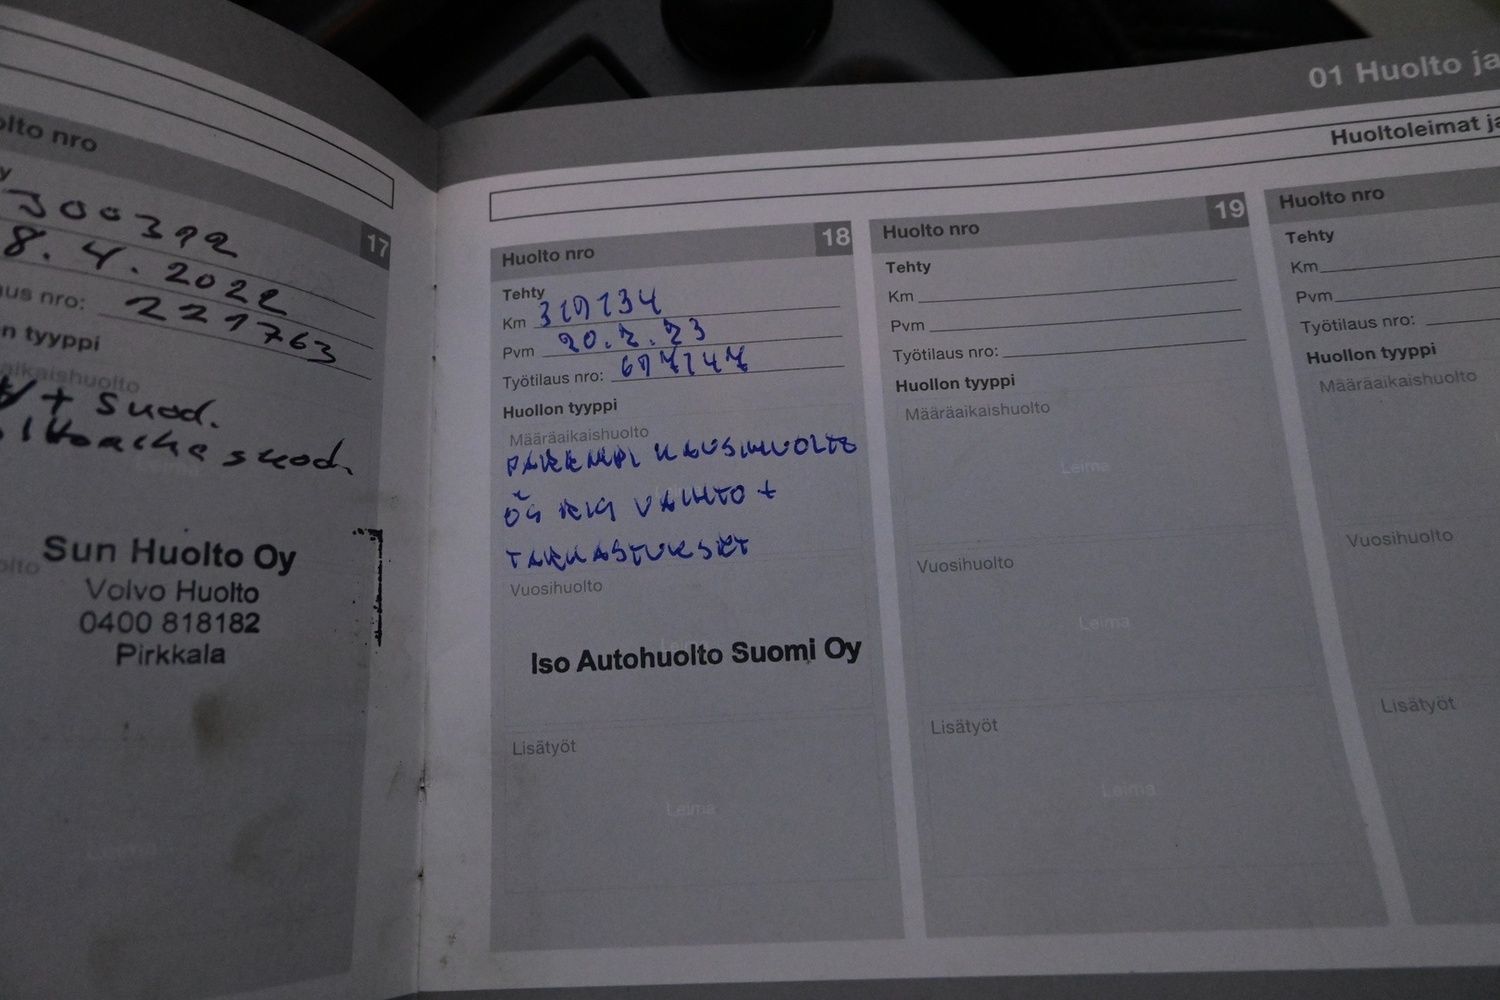 01 Huolto ja
Huoltoleimat ja
olto nro
17
y
300392
8.4.2022
aus nro: 221763
n tyyppi
aikaishuolto
+ suod.
suod.
Sun Huolto Oy
Volvo Huolto
0400 818182
Pirkkala
Huolto nro 18
Tehty
Km 319134
Pvm 20.2.23
Työtilaus nro: 697147
Huollon tyyppi
Määräaikaishuolto
PAREMPI KAUSIHUOLTO
VAIHTO +
TARKASTUKSET
Vuosihuolto
Leima
Iso Autohuolto Suomi Oy
Lisätyöt
Leima
Huolto nro 19
Tehty
Km
Pvm
Työtilaus nro:
Huollon tyyppi
Määräaikaishuolto
Leima
Vuosihuolto
Leima
Lisätyöt
Leima
Huolto nro
Tehty
Km
Pvm
Työtilaus nro:
Huollon tyyppi
Määräaikaishuolto
Vuosihuolto
Lisätyöt